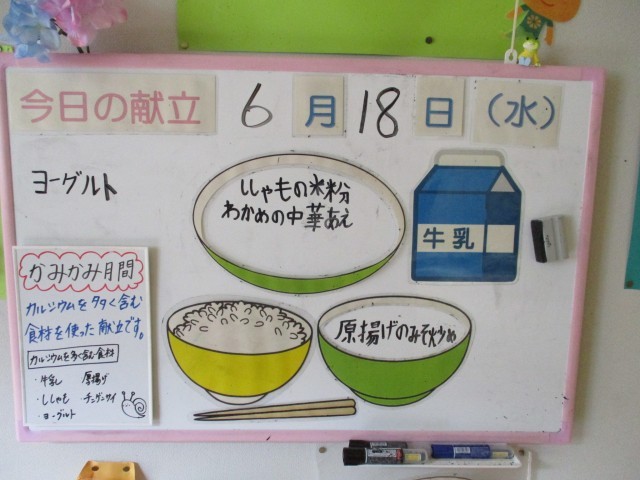 今日の献立 6月18日(水)
ヨーグルト
ししゃもの米粉
わかめの中華あえ
牛乳
原揚げのみそ炒め
かみかみ月間
カルシウムを多く含む
食材を使った献立です。
カルシウムを多く含む食材
・牛乳 厚揚げ
・ししゃも ・チンゲンサイ
・ヨーグルト